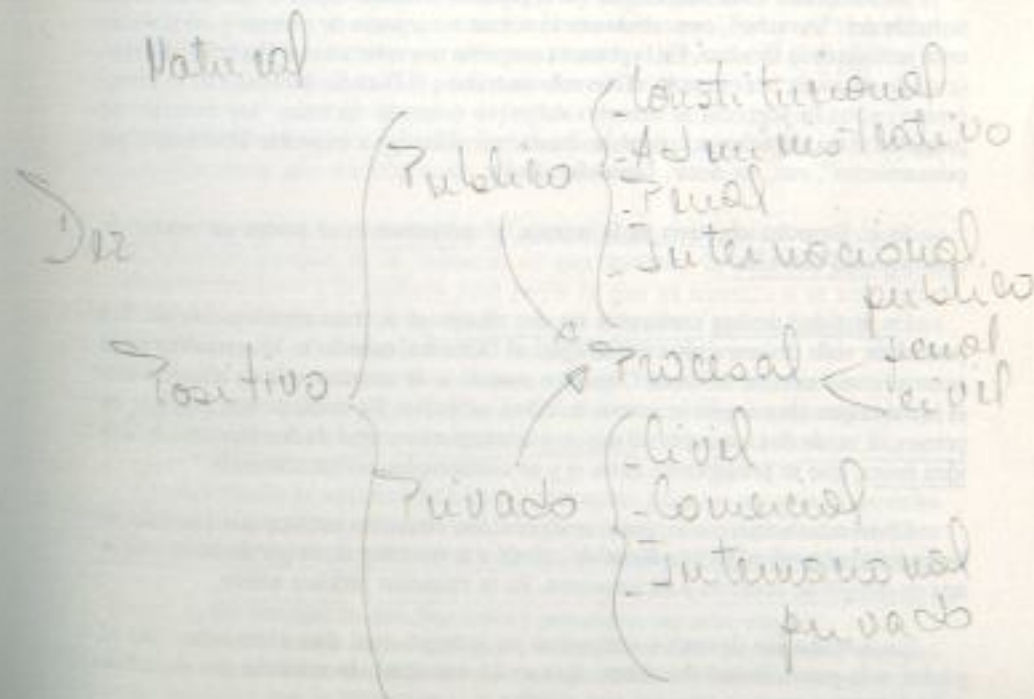 Natural
Der
Positivo
Publico
- Constitucional
- Administrativo
- Penal
- Internacional
publico
Procesal
penal
civil
Privado
- Civil
- Comercial
- Internacional
privado